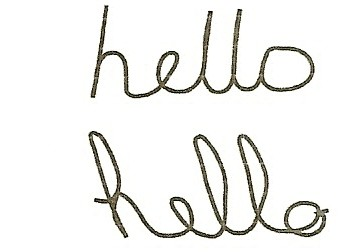 hello
hello